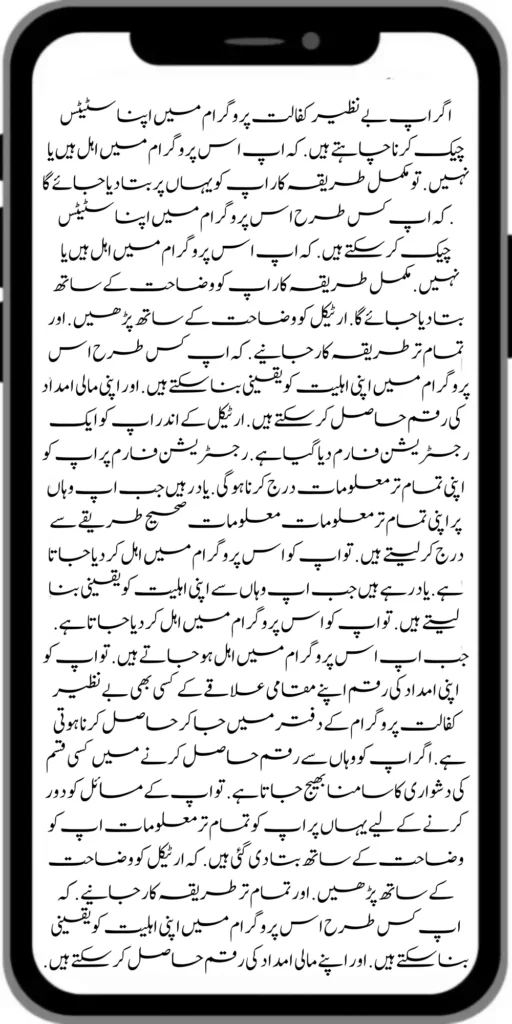 اگر اپ بے نظیر کفالت پروگرام میں اپنا سٹیٹس
چیک کرنا چاہتے ہیں. کہ اپ اس پروگرام میں اہل ہیں یا
نہیں. تو مکمل طریقہ کار اپ کو یہاں پر بتا دیا جائے گا
. کہ اپ کس طرح اس پروگرام میں اپنا سٹیٹس
چیک کر سکتے ہیں. کہ اپ اس پروگرام میں اہل ہیں یا
نہیں. مکمل طریقہ کار اپ کو وضاحت کے ساتھ
بتا دیا جائے گا. ارٹیکل کو وضاحت کے ساتھ پڑھیں. اور
تمام تر طریقہ کار جانیے. کہ اپ کس طرح اس
پروگرام میں اپنی اہلیت کو یقینی بنا سکتے ہیں. اور اپنی مالی امداد
کی رقم حاصل کر سکتے ہیں. ارٹیکل کے اندر اپ کو ایک
رجسٹریشن فارم دیا گیا ہے. رجسٹریشن فارم پر اپ کو
اپنی تمام تر معلومات درج کرنا ہوگی. یاد رہیں جب اپ وہاں
پر اپنی تمام تر معلومات معلومات صحیح طریقے سے
درج کر لیتے ہیں. تو اپ کو اس پروگرام میں اہل کر دیا جاتا
ہے. یاد رہے ہیں جب اپ وہاں سے اپنی اہلیت کو یقینی بنا
لیتے ہیں. تو اپ کو اس پروگرام میں اہل کر دیا جاتا ہے.
جب اپ اس پروگرام میں اہل ہو جاتے ہیں. تو اپ کو
اپنی امداد کی رقم اپنے مقامی علاقے کے کسی بھی بے نظیر
کفالت پروگرام کے دفتر میں جا کر حاصل کرنا ہوتی
ہے. اگر اپ کو وہاں سے رقم حاصل کرنے میں کسی قسم
کی دشواری کا سامنا بھیج جاتا ہے. تو اپ کے مسائل کو دور
کرنے کے لیے یہاں پر اپ کو تمام تر معلومات اپ کو
وضاحت کے ساتھ بتا دی گئی ہیں. کہ ارٹیکل کو وضاحت
کے ساتھ پڑھیں. اور تمام تر طریقہ کار جانیے. کہ
اپ کس طرح اس پروگرام میں اپنی اہلیت کو یقینی
بنا سکتے ہیں. اور اپنے مالی امداد کی رقم حاصل کر سکتے ہیں.